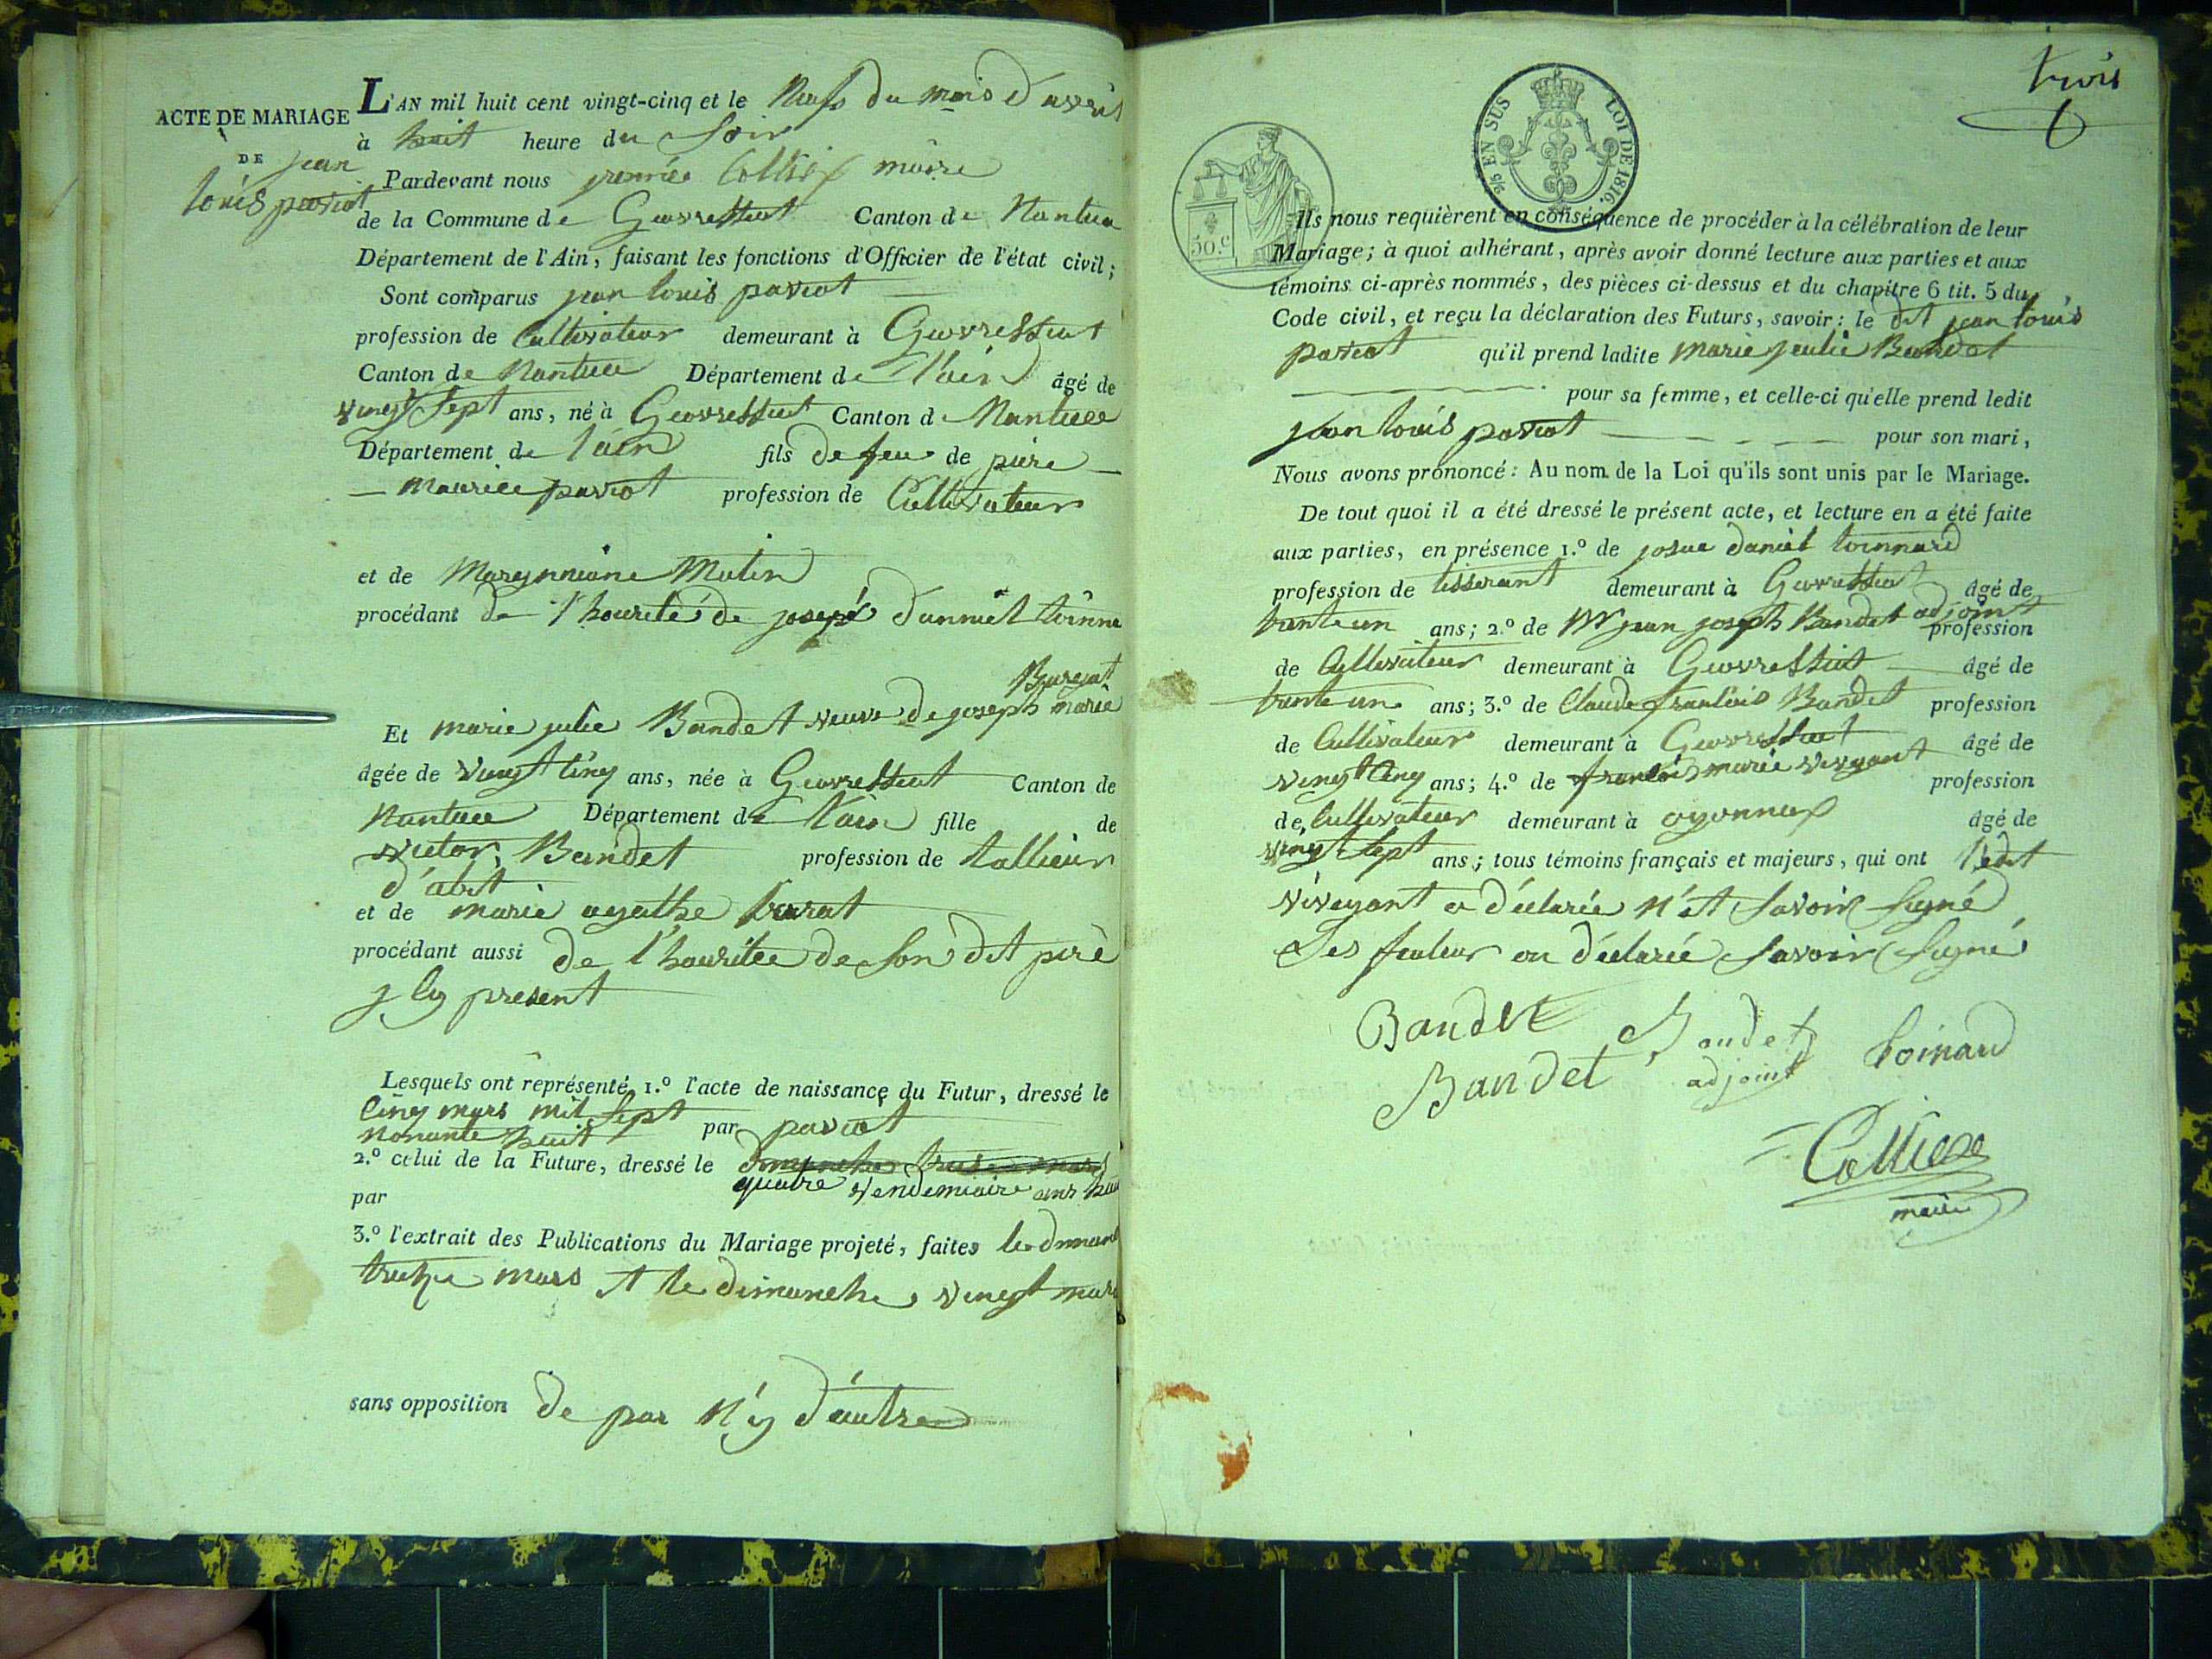 ACTE DE MARIAGE
DE jean
louis paviot
L'AN mil huit cent vingt-cinq et le Neuf du mois d'avril
à huit heure du Soir
Pardevant nous maire
de la Commune de Geovressiat Canton de Nantua
Département de l'Ain, faisant les fonctions d'Officier de l'état civil;
Sont comparus jean louis paviot
profession de Cultivateur demeurant à Geovressiat
Canton de Nantua Département de l'ain âgé de
vingt Sept ans, né à Geovressiat Canton de Nantua
Département de l'ain fils de feu de piere
maurice paviot profession de Cultivateur
et de Marynniane Matin
procédant de l'hourité de josepé danniel toinna
Burgat
Et marie julie Bandet veuve de joseph marie
âgée de vingt cinq ans, née à Geovressiat Canton de
Nantua Département de l'ain fille de
victor Bandet profession de tallieur
d'abit
et de marie agathe
procédant aussi de l'houritée de Son dit père
y cy present
Lesquels ont représenté 1.º l'acte de naissance du Futur, dressé le
Cinq mars mil Sept
nonante huit par paviot
2.º celui de la Future, dressé le
quatre vendemiaire
par
3.º l'extrait des Publications du Mariage projeté, faites le
treize mars et le dimanche vingt mars
sans opposition de par n'y d'autre
trois
25/c EN SUS LOI DE 1816.
50.c
Ils nous requièrent en conséquence de procéder à la célébration de leur
Mariage; à quoi adhérant, après avoir donné lecture aux parties et aux
témoins ci-après nommés, des pièces ci-dessus et du chapitre 6 tit. 5 du
Code civil, et reçu la déclaration des Futurs, savoir: le dit jean louis
paviot qu'il prend ladite marie jeulie Bandet
pour sa femme, et celle-ci qu'elle prend ledit
jean louis paviot pour son mari,
Nous avons prononcé: Au nom de la Loi qu'ils sont unis par le Mariage.
De tout quoi il a été dressé le présent acte, et lecture en a été faite
aux parties, en présence 1.º de josue daniel toinnard
profession de tisserant demeurant à Geovressiat âgé de
trente un ans; 2.º de Mr jean joseph Bandet adjoint profession
de Cultivateur demeurant à Geovressiat âgé de
trente un ans; 3.º de Claude francois Bandet profession
de Cultivateur demeurant à Geovressiat âgé de
vingt cinq ans; 4.º de francois marie vivyant profession
de Cultivateur demeurant à oyonnax âgé de
vingt Sept ans; tous témoins français et majeurs, qui ont ledit
viveyant a déclarée n'et Savoir Signé
Les feuteur on déclarée Savoir Signé
Bandet Bandet toinard
Bandet adjoint
Colliex
maire